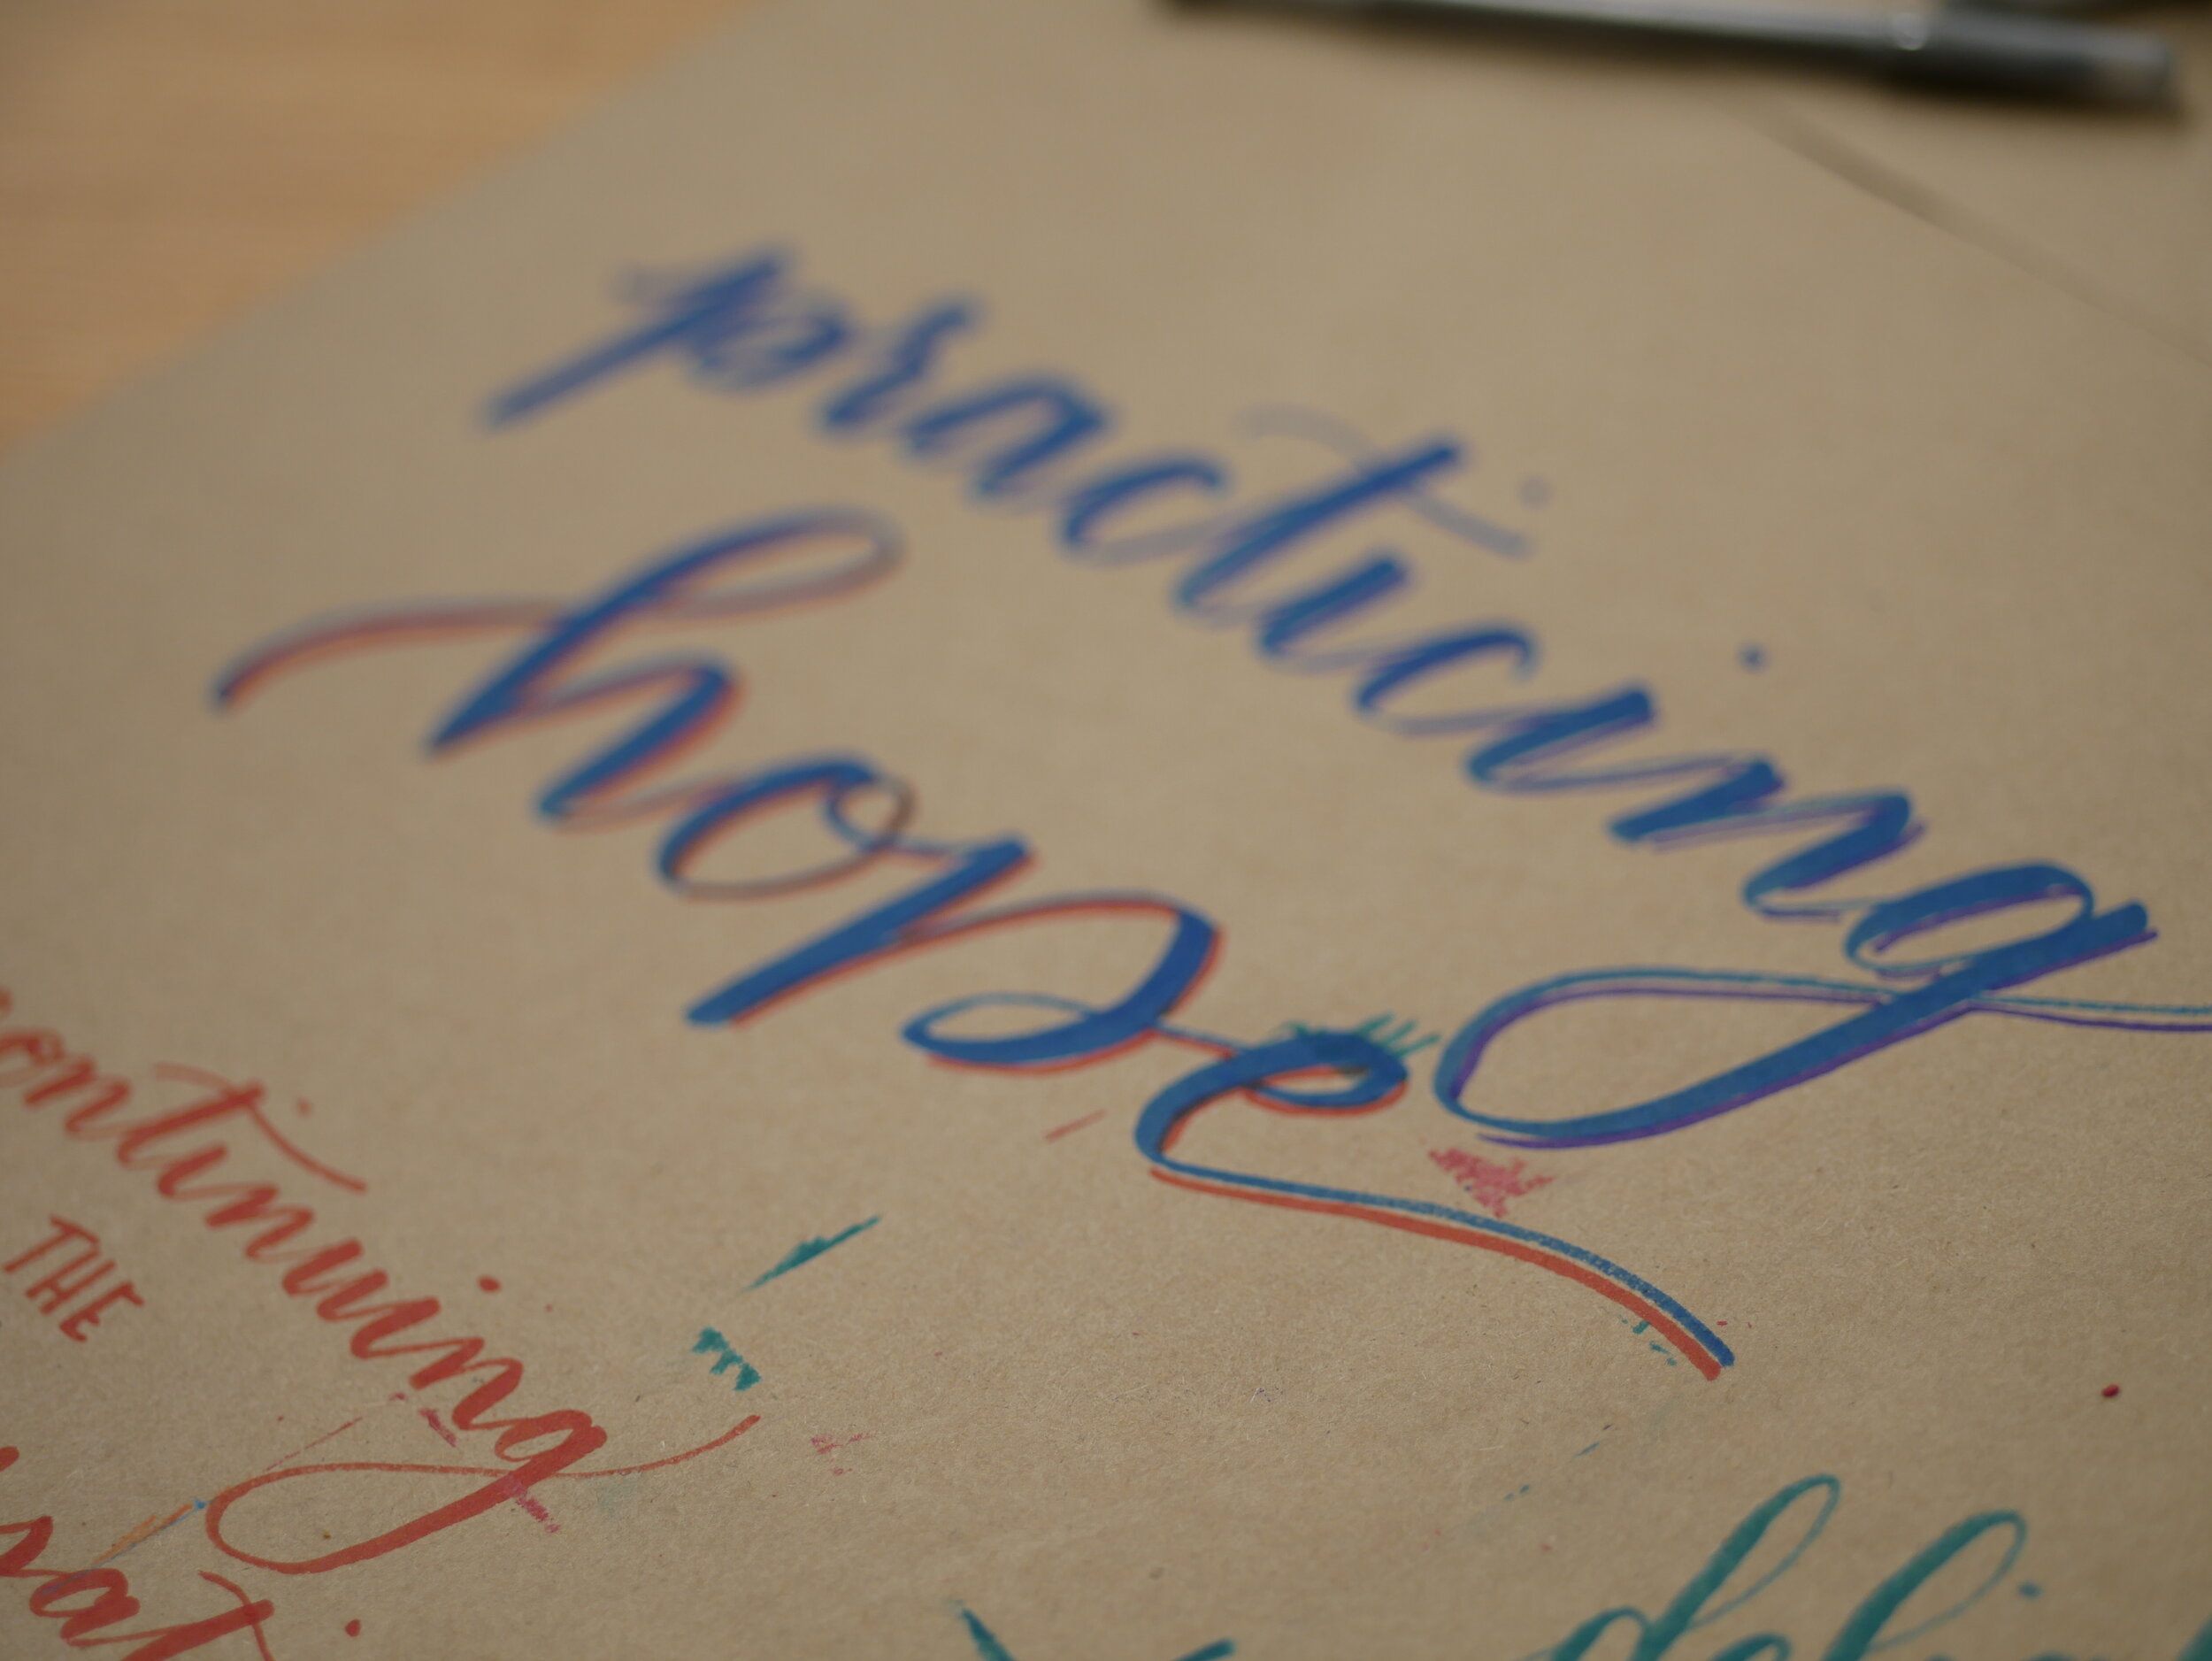 practicing
hope
continuing
THE